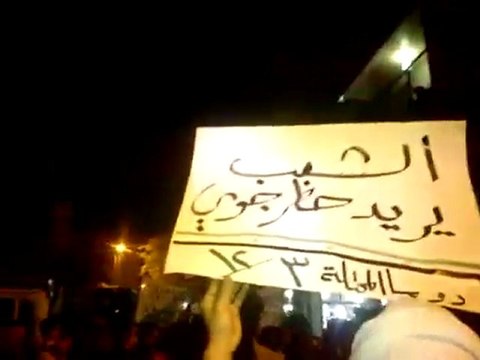 ألشعب
يريد حظر جوي
دوما المحتلة ١٢/٣